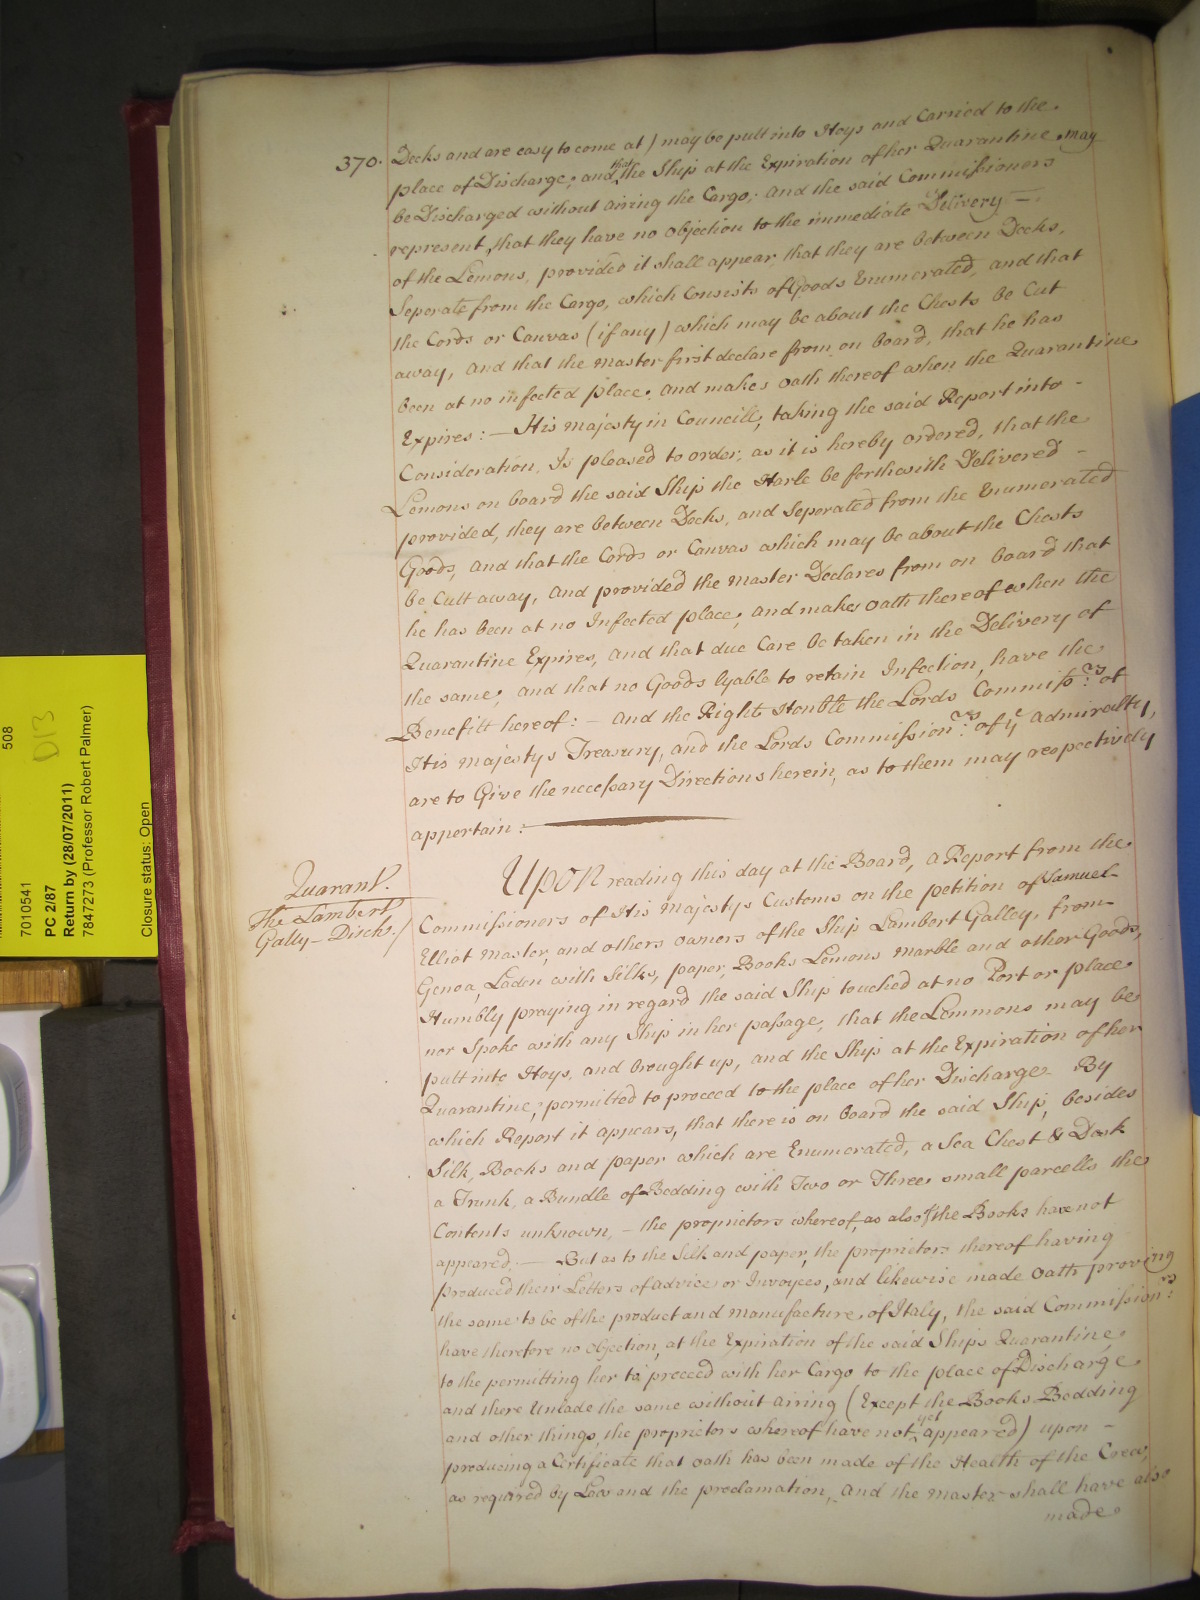 370.
Decks and are easy to come at) may be putt into Hoys and Carried to the
place of Discharge; and that the Ship at the Expiration of her Quarantine may
be Discharged without airing the Cargo; And the said Commissioners
represent, that they have no objection to the immediate Delivery —
of the Lemons, provided it shall appear, that they are between Decks,
Seperate from the Cargo, which Consists of Goods Enumerated, and that
the Cords or Canvas (if any) which may be about the Chests be Cut
away, and that the Master first declare from on board, that he has
been at no infected place, and makes oath thereof when the Quarantine
Expires: — His Majesty in Councill, taking the said Report into -
Consideration, Is pleased to order, as it is hereby ordered, that the
Lemons on board the said Ship the Harle be forthwith Delivered -
provided, they are between Decks, and Seperated from the Enumerated
Goods, and that the Cords or Canvas which may be about the Chests
be Cutt away, and provided the Master Declares from on board that
he has been at no Infected place, and makes oath thereof when the
Quarantine Expires, and that due Care be taken in the Delivery of
the same, and that no Goods lyable to retain Infection, have the
Benefitt hereof: — And the Right Honble the Lords Commiss:rs of
His Majestys Treasury, and the Lords Commission:rs of ye Admiralty,
are to Give the necessary Directions herein, as to them may respectively
appertain:
Quarant.
The Lambert
Gally — Disch./
Upon reading this day at the Board, a Report from the
Commissioners of His Majestys Customs on the petition of Samuel
Elliot Master, and others owners of the Ship Lambert Galley, from
Genoa, Laden with Silks, paper, Books Lemons Marble and other Goods,
Humbly praying in regard the said Ship touched at no Port or place
nor Spoke with any Ship in her passage, that the Lemmons may be
putt into Hoys, and brought up, and the Ship at the Expiration of her
Quarantine, permitted to proceed to the place of her Discharge - By
which Report it appears, that there is on board the said Ship, besides
Silk, Books and paper which are Enumerated, a Sea Chest & Desk
a Trunk, a Bundle of Bedding with Two or Three small parcells the
Contents unknown, — the proprietors whereof, as also of the Books have not
appeared; — But as to the Silk and paper, the proprietors thereof having
produced their Letters of advice or Invoyces, and likewise made Oath proving
the same to be of the product and manufacture of Italy, the said Commission:rs
have therefore no objection, at the Expiration of the said Ships Quarantine,
to the permitting her to proceed with her Cargo to the place of Discharge
and there Unlade the same without airing (Except the Books Bedding
and other things, the proprietors whereof have not yet appeared) upon -
producing a Certificate that oath has been made of the Health of the Crew,
as required by Law and the proclamation, and the Master shall have also
made
508
D13
7010541
PC 2/87
Return by (28/07/2011)
7847273 (Professor Robert Palmer)
Closure status: Open